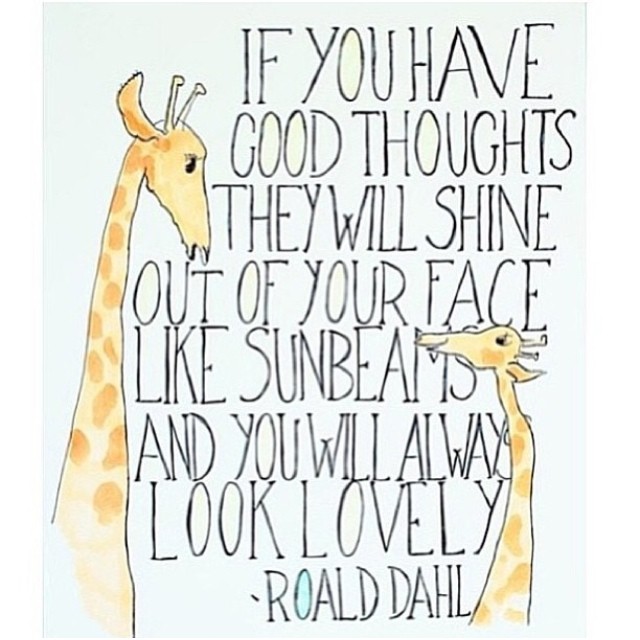 IF YOU HAVE
GOOD THOUGHTS
THEY WILL SHINE
OUT OF YOUR FACE
LIKE SUNBEAMS
AND YOU WILL ALWAYS
LOOK LOVELY
-ROALD DAHL